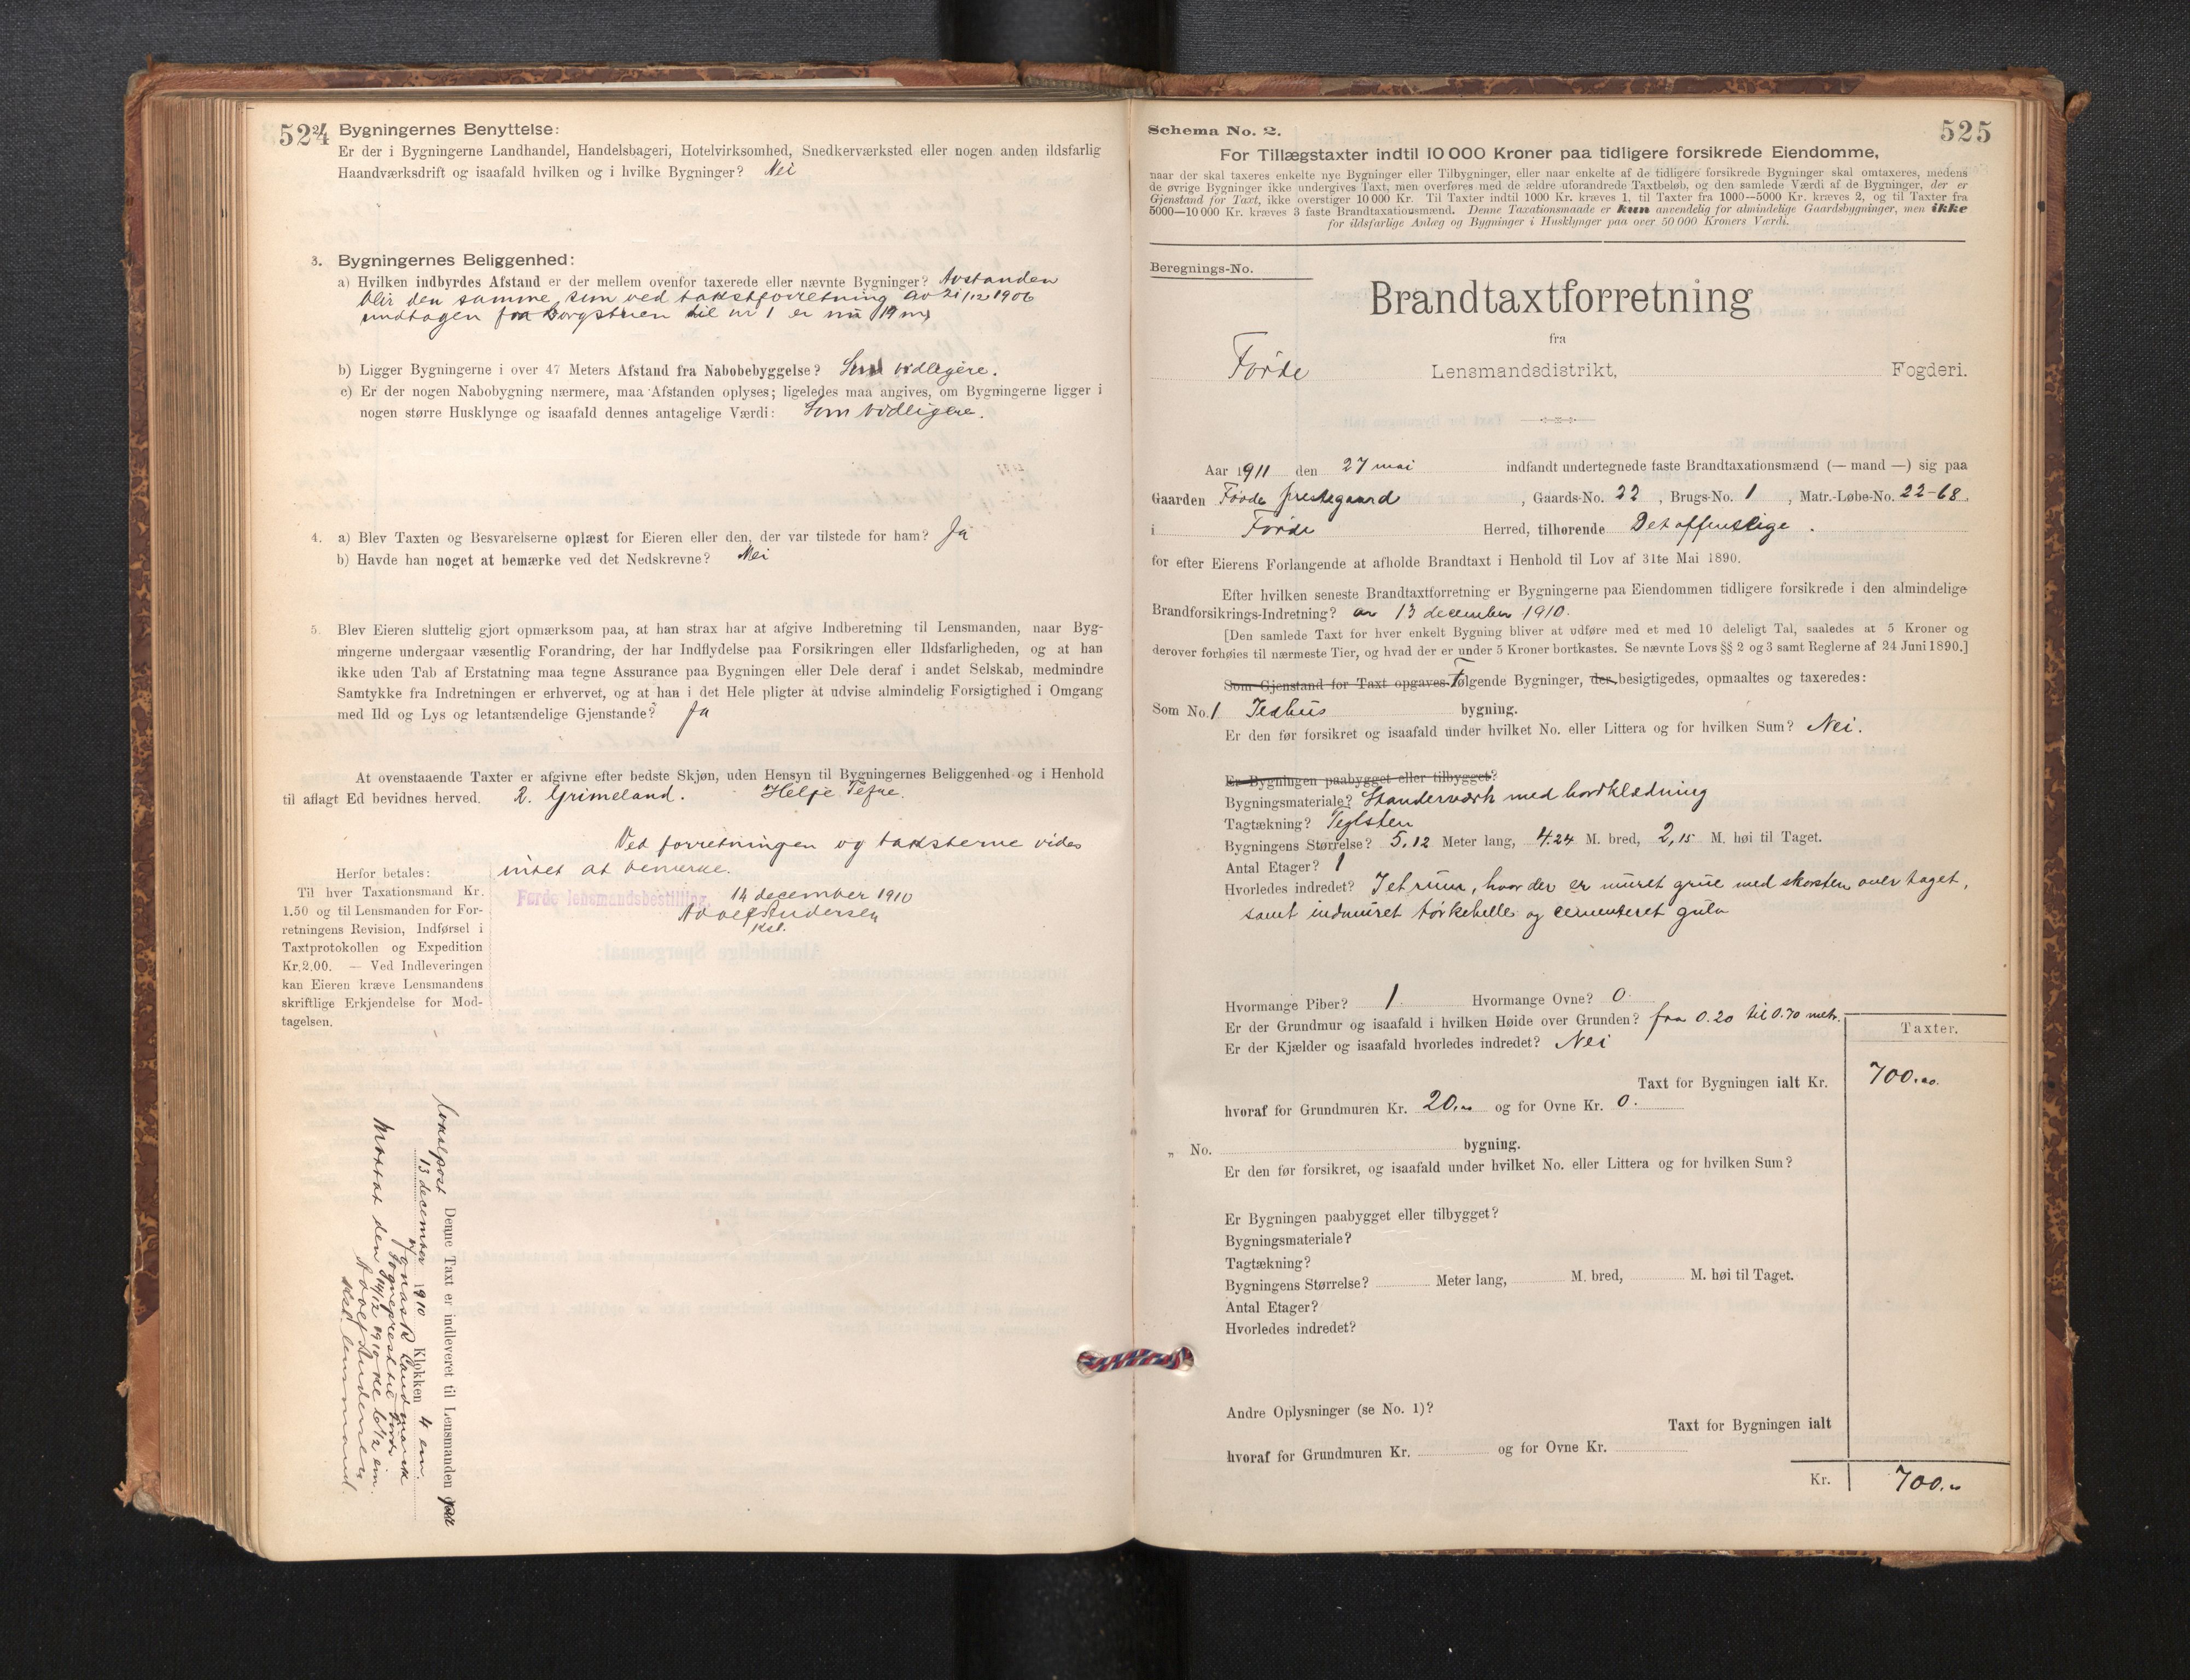 524
Bygningernes Benyttelse:
Er der i Bygningerne Landhandel, Handelsbageri, Hotelvirksomhed, Snedkerværksted eller nogen anden ildsfarlig
Haandværksdrift og isaafald hvilken og i hvilke Bygninger? Nei
3. Bygningernes Beliggenhed:
a) Hvilken indbyrdes Afstand er der mellem ovenfor taxerede eller nævnte Bygninger? Avstanden
blir den samme som ved takstforretning av 21/12 1906
undtagen fra borgstuen til nr 1 er nu 19 m
b) Ligger Bygningerne i over 47 Meters Afstand fra Nabobebyggelse? Som vidligere.
c) Er der nogen Nabobygning nærmere, maa Afstanden oplyses; ligeledes maa angives, om Bygningerne ligger i
nogen større Husklynge og isaafald dennes antagelige Værdi: Som vidligere.
4. a) Blev Taxten og Besvarelserne oplæst for Eieren eller den, der var tilstede for ham? Ja
b) Havde han noget at bemærke ved det Nedskrevne? Nei
5. Blev Eieren sluttelig gjort opmærksom paa, at han strax har at afgive Indberetning til Lensmanden, naar Byg-
ningerne undergaar væsentlig Forandring, der har Indflydelse paa Forsikringen eller Ildsfarligheden, og at han
ikke uden Tab af Erstatning maa tegne Assurance paa Bygningen eller Dele deraf i andet Selskab, medmindre
Samtykke fra Indretningen er erhvervet, og at han i det Hele pligter at udvise almindelig Forsigtighed i Omgang
med Ild og Lys og letantændelige Gjenstande? Ja
At ovenstaaende Taxter er afgivne efter bedste Skjøn, uden Hensyn til Bygningernes Beliggenhed og i Henhold
til aflagt Ed bevidnes herved. R. Grimeland. Helje Tefre.
Ved forretningen og taksterne vides
intet at bemerke.
Førde lensmandsbestilling, 14 december 1910
Adolf Andersen
kst.
Herfor betales:
Til hver Taxationsmand Kr.
1.50 og til Lensmanden for For-
retningens Revision, Indførsel i
Taxtprotokollen og Expedition
Kr. 2.00. — Ved Indleveringen
kan Eieren kræve Lensmandens
skriftlige Erkjendelse for Mod-
tagelsen.
Denne Taxt er indleveret til Lensmanden
13 december 1910 Klokken 4 em.
af Jonas R Landmark
Sogneprest til Førde
Mottat den 14/12 1910 kl 6 1/2 em.
Adolf Andersen
kst lensmand.
Schema No. 2.
525
For Tillægstaxter indtil 10 000 Kroner paa tidligere forsikrede Eiendomme,
naar der skal taxeres enkelte nye Bygninger eller Tilbygninger, eller naar enkelte af de tidligere forsikrede Bygninger skal omtaxeres, medens
de øvrige Bygninger ikke undergives Taxt, men overføres med de ældre uforandrede Taxtbeløb, og den samlede Værdi af de Bygninger, der er
Gjenstand for Taxt, ikke overstiger 10 000 Kr. Til Taxter indtil 1000 Kr. kræves 1, til Taxter fra 1000—5000 Kr. kræves 2, og til Taxter fra
5000—10 000 Kr. kræves 3 faste Brandtaxationsmænd. Denne Taxationsmaade er kun anvendelig for almindelige Gaardsbygninger, men ikke
for ildsfarlige Anlæg og Bygninger i Husklynger paa over 50 000 Kroners Værdi.
Beregnings-No.
Brandtaxtforretning
fra
Førde Lensmandsdistrikt, Fogderi.
Aar 1911 den 27 mai indfandt undertegnede faste Brandtaxationsmænd (— mand —) sig paa
Gaarden Førde prestegaard, Gaards-No. 22, Brugs-No. 1, Matr.-Løbe-No. 22-68.
i Førde Herred, tilhørende Det offenslige.
for efter Eierens Forlangende at afholde Brandtaxt i Henhold til Lov af 31te Mai 1890.
Efter hvilken seneste Brandtaxtforretning er Bygningerne paa Eiendommen tidligere forsikrede i den almindelige
Brandforsikrings-Indretning? av 13 december 1910.
[Den samlede Taxt for hver enkelt Bygning bliver at udføre med et med 10 deleligt Tal, saaledes at 5 Kroner og
derover forhøies til nærmeste Tier, og hvad der er under 5 Kroner bortkastes. Se nævnte Lovs §§ 2 og 3 samt Reglerne af 24 Juni 1890.]
Som Gjenstand for Taxt opgaves Følgende Bygninger, der besigtigedes, opmaaltes og taxeredes:
Som No. 1 Ildhus bygning.
Er den før forsikret og isaafald under hvilket No. eller Littera og for hvilken Sum? Nei.
Er Bygningen paabygget eller tilbygget?
Bygningsmateriale? Standerværk med bordklædning
Tagtækning? Teglsten
Bygningens Størrelse? 5,12 Meter lang, 4.24 M. bred, 2,15 M. høi til Taget.
Antal Etager? 1
Hvorledes indredet? I et rum, hvor der er muret grue med skorsten over taget,
samt indmuret tørkehelle og cementeret gulv
Hvormange Piber? 1. Hvormange Ovne? 0.
Er der Grundmur og isaafald i hvilken Høide over Grunden? fra 0.20 til 0.70 metr.
Er der Kjælder og isaafald hvorledes indredet? Nei
Taxter.
Taxt for Bygningen ialt Kr. 700.00.
hvoraf for Grundmuren Kr. 20.00 og for Ovne Kr. 0.
„ No. bygning.
Er den før forsikret, og isaafald under hvilket No. eller Littera og for hvilken Sum?
Er Bygningen paabygget eller tilbygget?
Bygningsmateriale?
Tagtækning?
Bygningens Størrelse? Meter lang, M. bred, M. høi til Taget.
Antal Etager?
Hvorledes indredet?
Andre Oplysninger (se No. 1)?
Taxt for Bygningen ialt
hvoraf for Grundmuren Kr. og for Ovne Kr.
Kr. 700.00